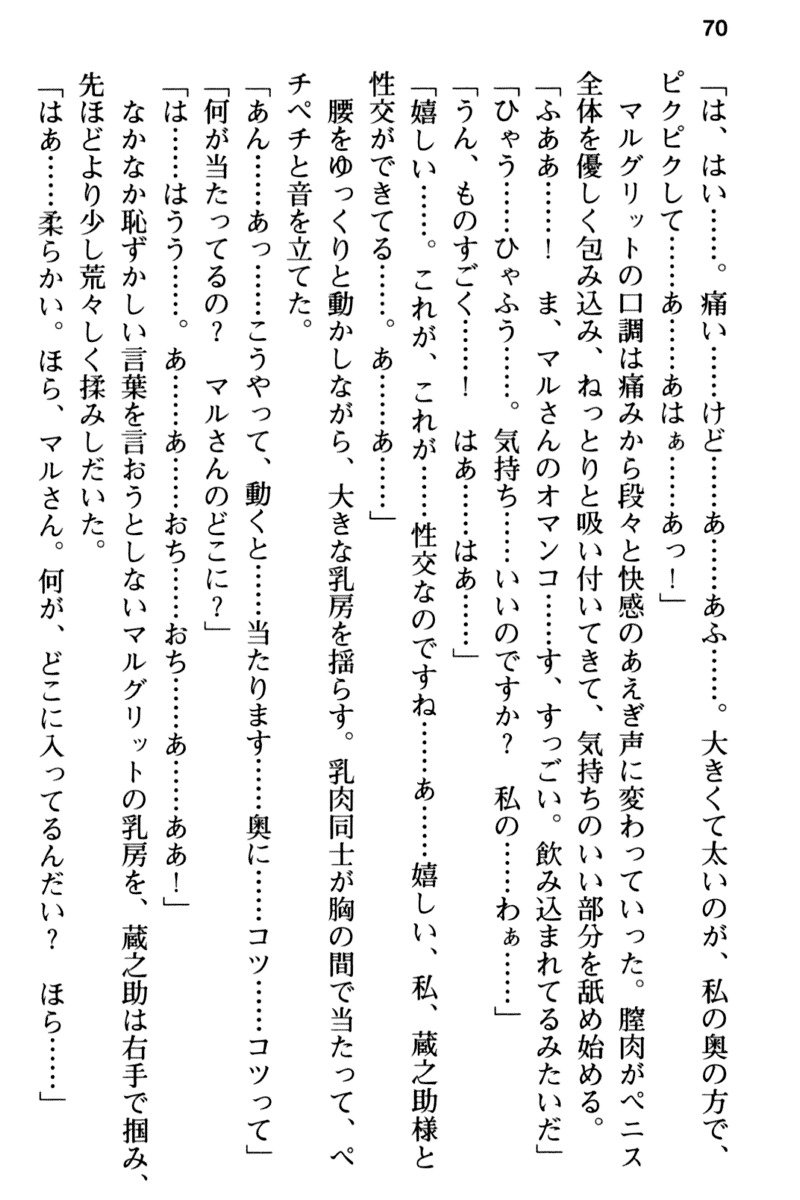 70
「は、はい……。痛い……けど……あ……あふ……。大きくて太いのが、私の奥の方で、
ピクピクして……あ……あはぁ……あっ！」
マルグリットの口調は痛みから段々と快感のあえぎ声に変わっていった。膣肉がペニス
全体を優しく包み込み、ねっとりと吸い付いてきて、気持ちのいい部分を舐め始める。
「ふああ……！　ま、マルさんのオマンコ……す、すっごい。飲み込まれてるみたいだ」
「ひゃう……ひゃふう……。気持ち……いいのですか？　私の……わぁ……」
「うん、ものすごく……！　はあ……はあ……」
「嬉しい……。これが、これが……性交なのですね……ぁ……嬉しい、私、蔵之助様と
性交ができてる……。あ……あ……」
腰をゆっくりと動かしながら、大きな乳房を揺らす。乳肉同士が胸の間で当たって、ペ
チペチと音を立てた。
「あん……あっ……こうやって、動くと……当たります……奥に……コツ……コツって」
「何が当たってるの？　マルさんのどこに？」
「は……はうう……。あ……あ……おち……おち……あ……ああ！」
なかなか恥ずかしい言葉を言おうとしないマルグリットの乳房を、蔵之助は右手で掴み、
先ほどより少し荒々しく揉みしだいた。
「はあ……柔らかい。ほら、マルさん。何が、どこに入ってるんだい？　ほら……」